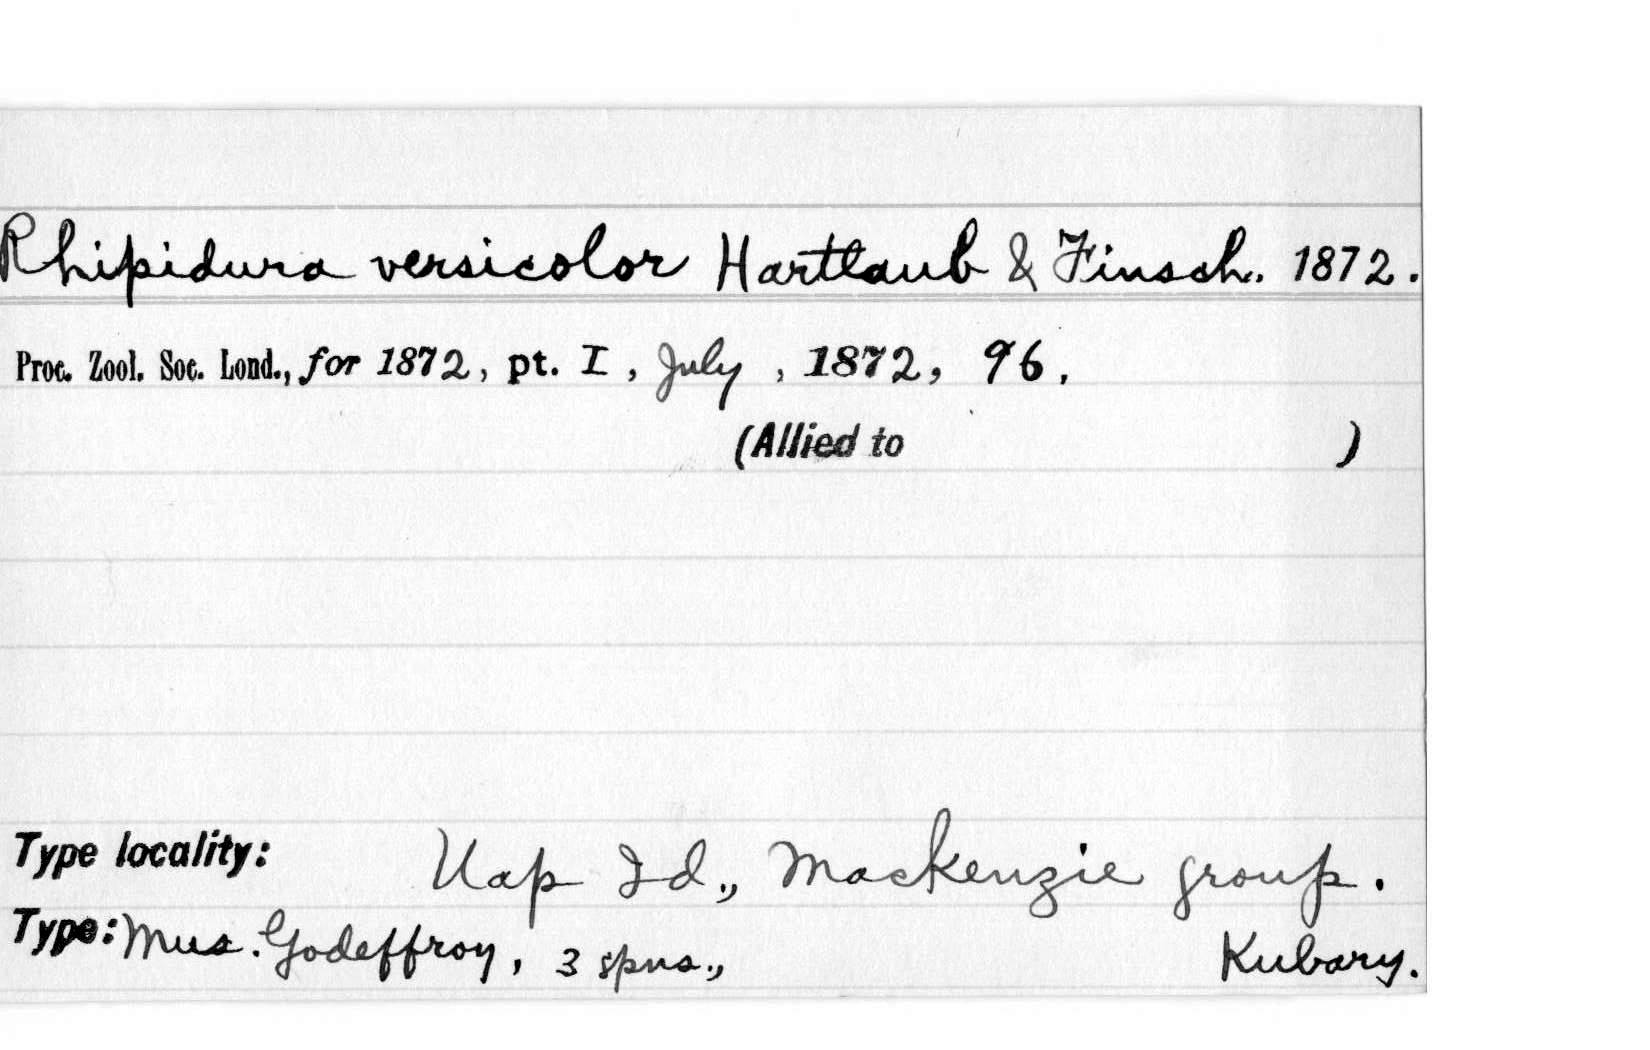 Rhipidura versicolor Hartlaub & Finsch. 1872.
Proc. Zool. Soc. Lond., for 1872, pt. I, July, 1872, 96.
(Allied to )
Type locality: Uap Id., Mackenzie group.
Type: Mus. Godeffroy, 3 spns., Kubary.